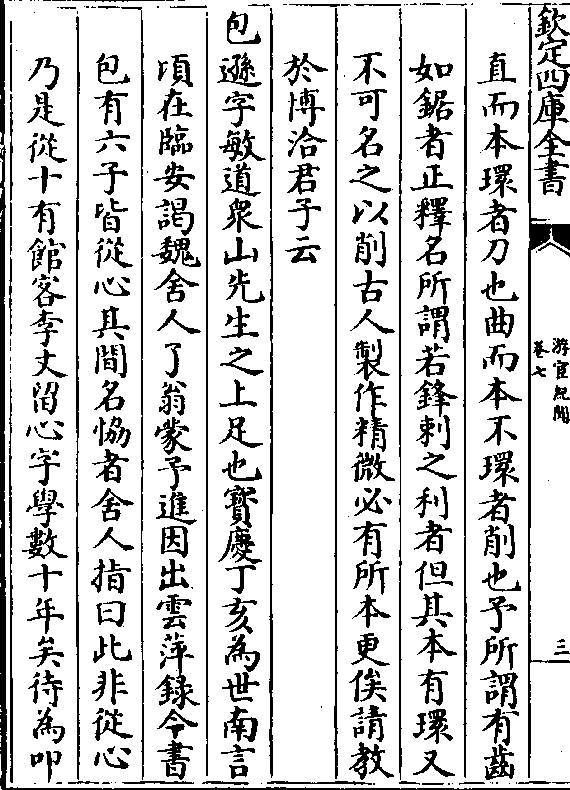 欽定四庫全書
游宦紀聞
卷七
三
直而本環者刀也曲而本不環者削也予所謂有齒
如鋸者正釋名所謂若鋒刺之利者但其本有環又
不可名之以削古人製作精微必有所本更俟請教
於博洽君子云
包遜字敏道象山先生之上足也寳慶丁亥為世南言
頃在臨安謁魏舍人了翁蒙予進因出雲萍録令書
包有六子皆從心其間名恊者舍人指曰此非從心
乃是從十有館客李丈留心字學數十年矣待為叩